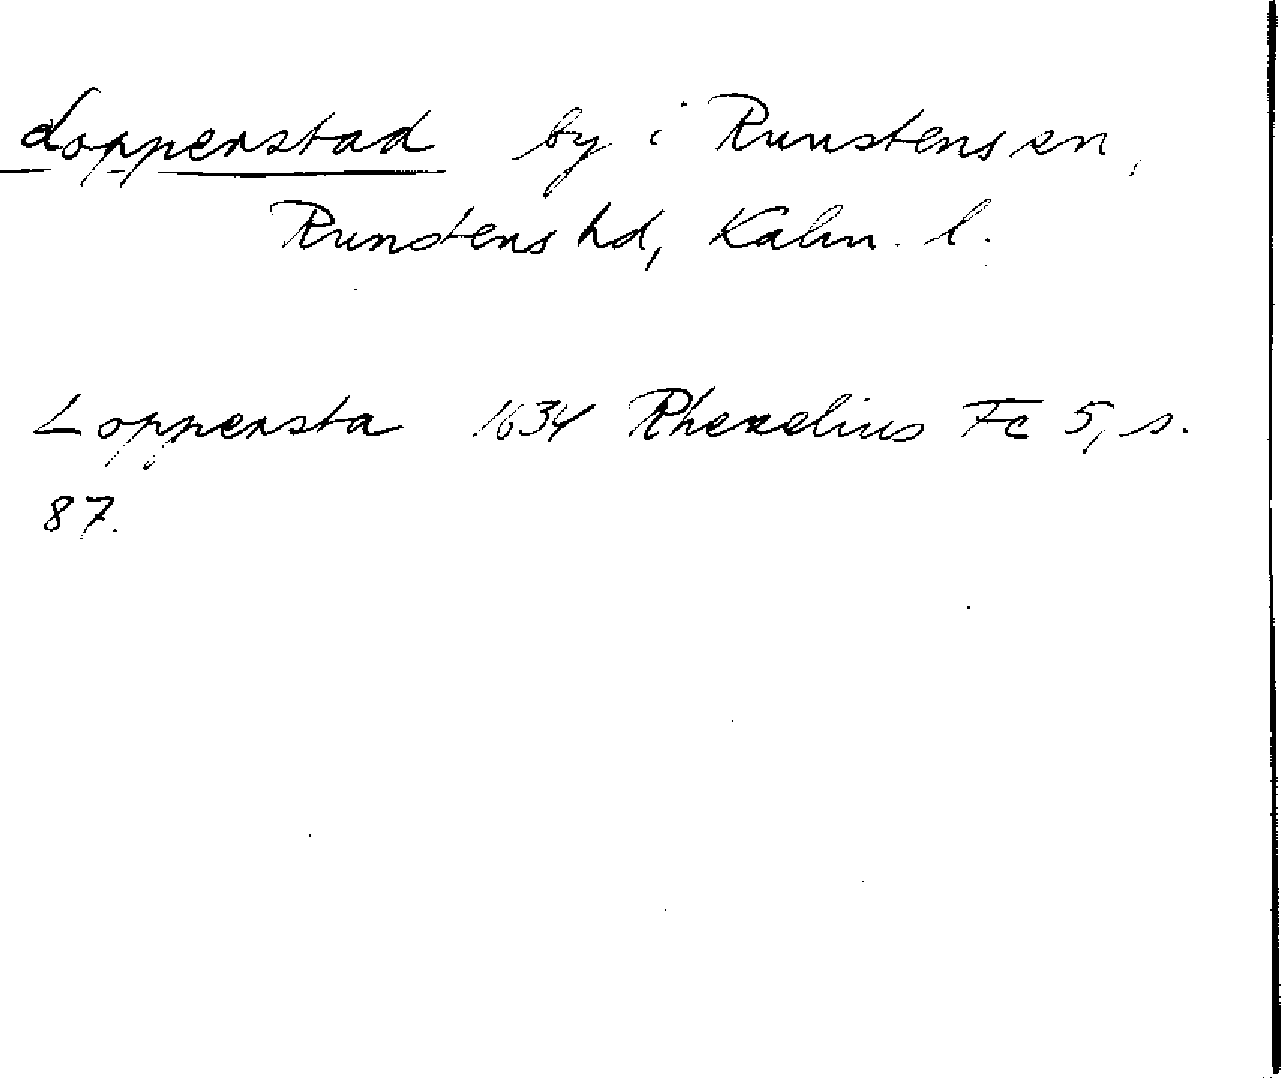 Lopperstad by i Runstens sn,
Runstens hd, Kalm. l.
Loppersta 1634 Rhezelius Fc 5, s.
87.